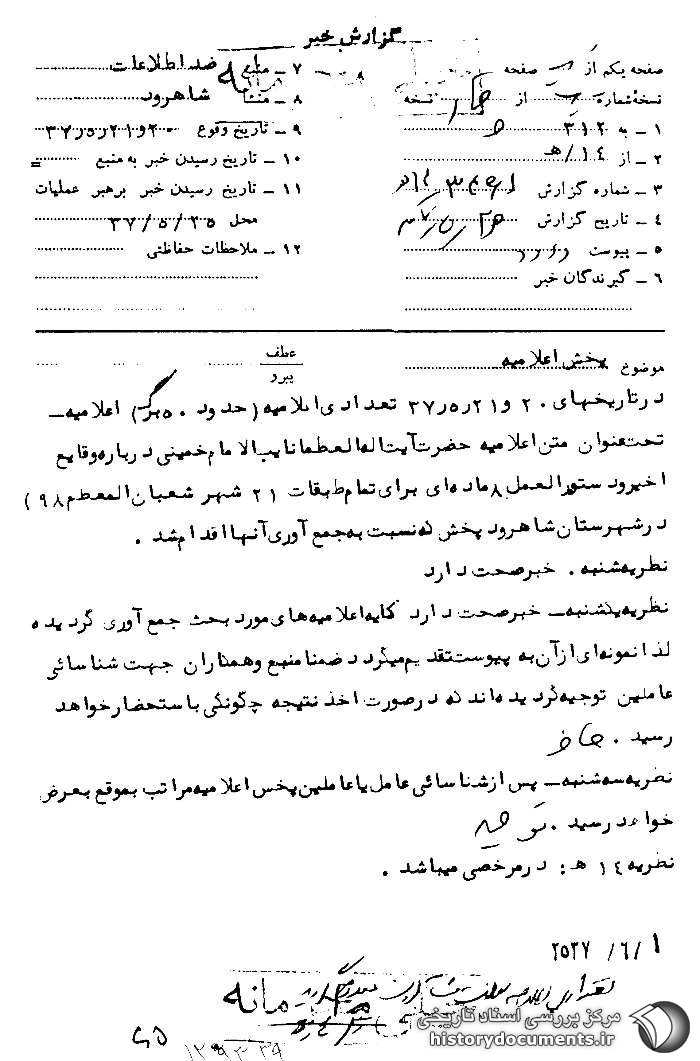 گزارش خبر
صفحه یکم از صفحه
نسخه شماره از چهار نسخه
۱ ـ به ۳۱۲
۲ ـ از ۱۴/هـ
۳ ـ شماره گزارش
۴ ـ تاریخ گزارش
۵ ـ پیوست
۶ ـ گیرندگان خبر
۷ ـ منبع ضد اطلاعات
۸ ـ منشاء شاهرود
۹ ـ تاریخ وقوع ۲۰ و ۲۱ ر۵ ر۳۷
۱۰ ـ تاریخ رسیدن خبر به منبع =
۱۱ ـ تاریخ رسیدن خبر برهبر عملیات
محل ۳۷/۵/۲۵
۱۲ ـ ملاحظات حفاظتی
موضوع پخش اعلامیه
عطف
پیرو
در تاریخهای ۲۰ و ۲۱ ر۵ ر۳۷ تعدادی اعلامیه (حدود ۵۰ برگ) اعلامیه ـ
تحت عنوان متن اعلامیه حضرت آیت اله العظما نایب الامام خمینی درباره وقایع
اخیر و دستورالعمل ۸ ماده ای برای تمام طبقات ۲۱ شهر شعبان المعظم ۹۸)
در شهرستان شاهرود پخش که نسبت به جمع آوری آنها اقدام شد .
نظریه شنبه . خبر صحت دارد
نظریه یکشنبه ـ خبر صحت دارد کلیه اعلامیه های مورد بحث جمع آوری گردیده
لذا نمونه ای از آن به پیوست تقدیم میگردد ضمنا منبع و همکاران جهت شناسائی
عاملین توجیه گردیده اند که در صورت اخذ نتیجه چگونگی باستحضار خواهد
رسید .
نظریه سه شنبه ـ پس از شناسائی عامل یا عاملین پخس اعلامیه مراتب بموقع بعرض
خواهد رسید . توحید
نظریه ۱۴ هـ : در مرخصی میباشد .
۲۵۳۷ /۶/۱
مرکز بررسی اسناد تاریخی
historydocuments.ir